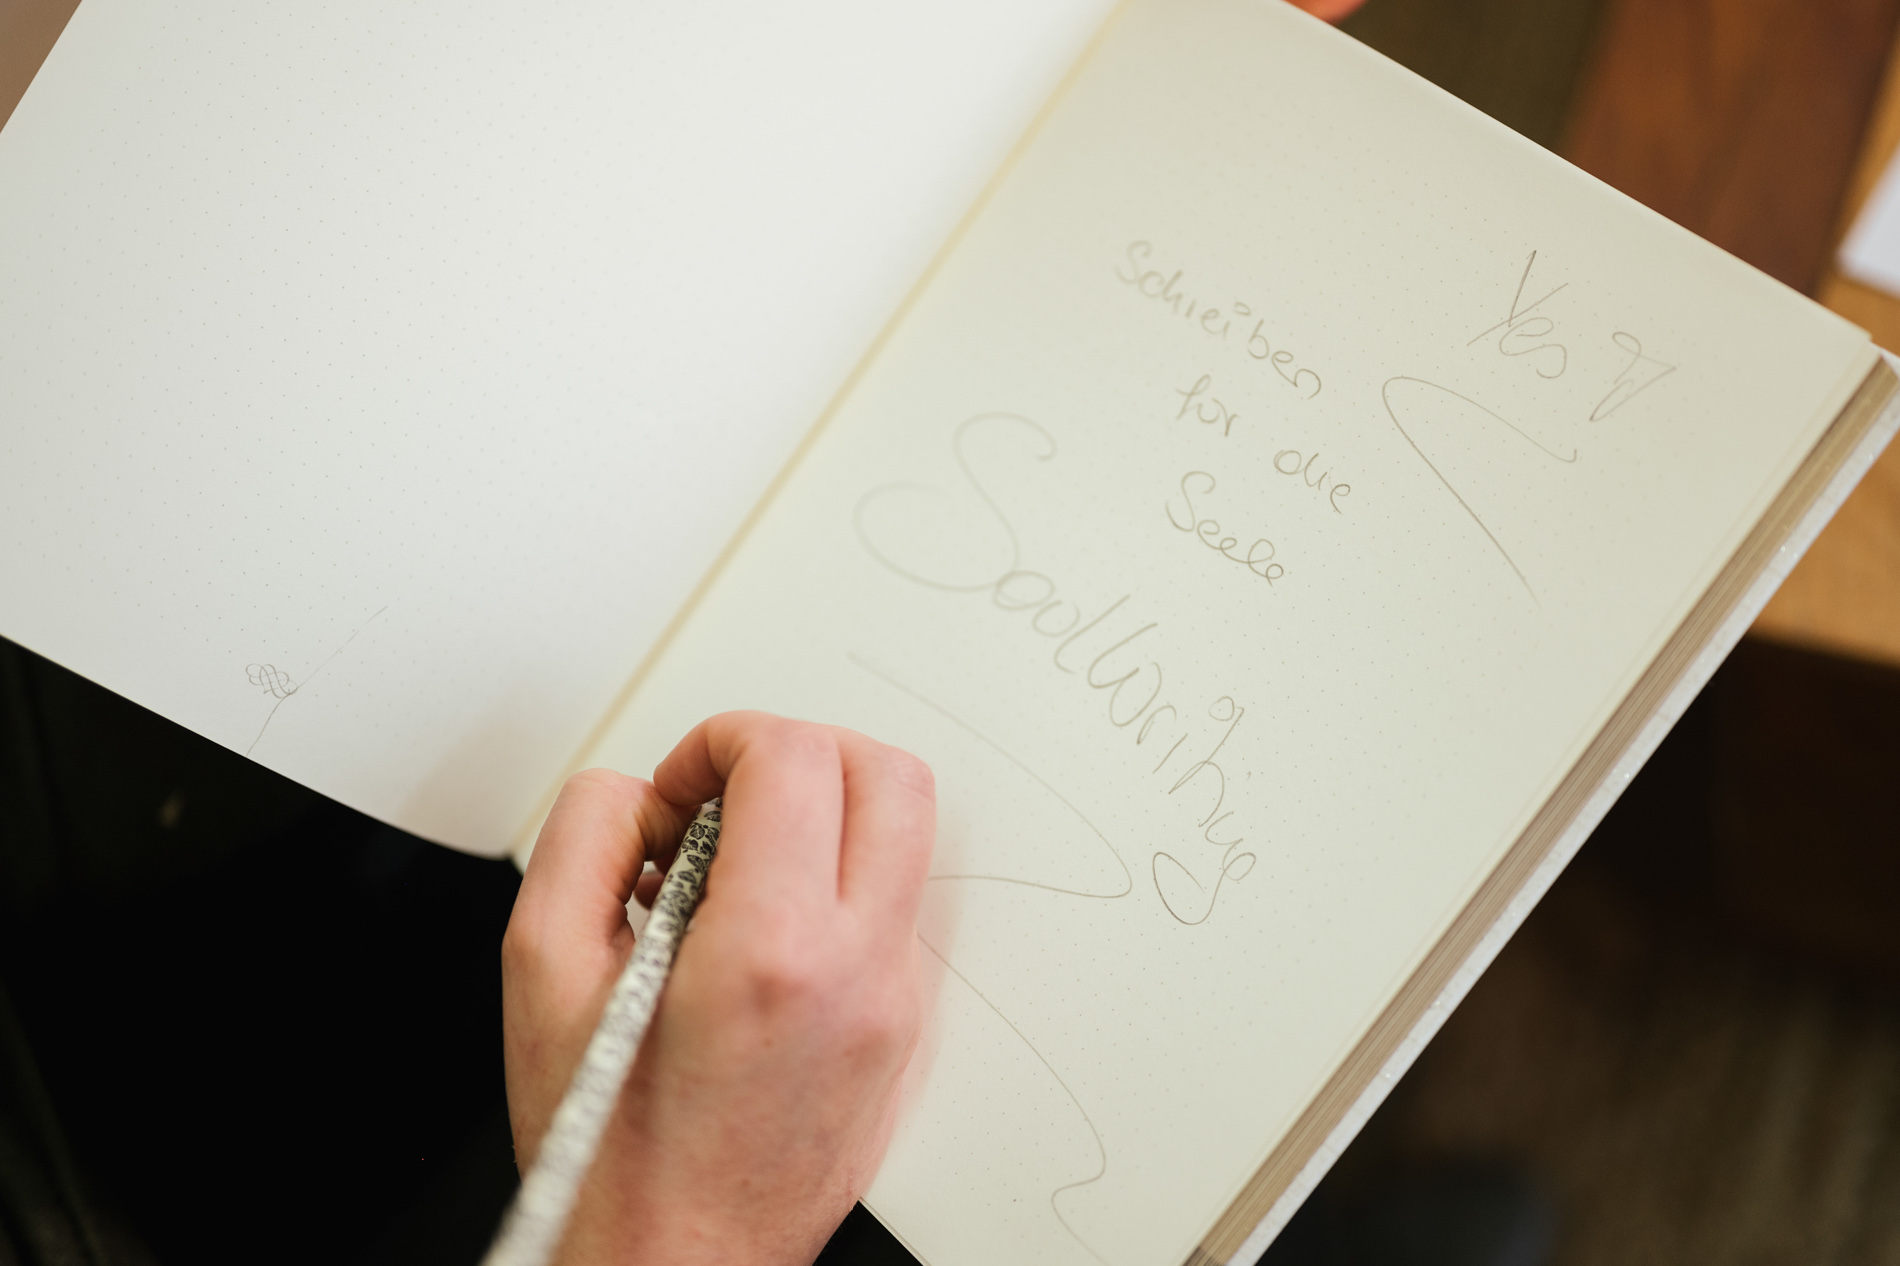 Yes
Schreiben
für die
Seele
SoulWriting